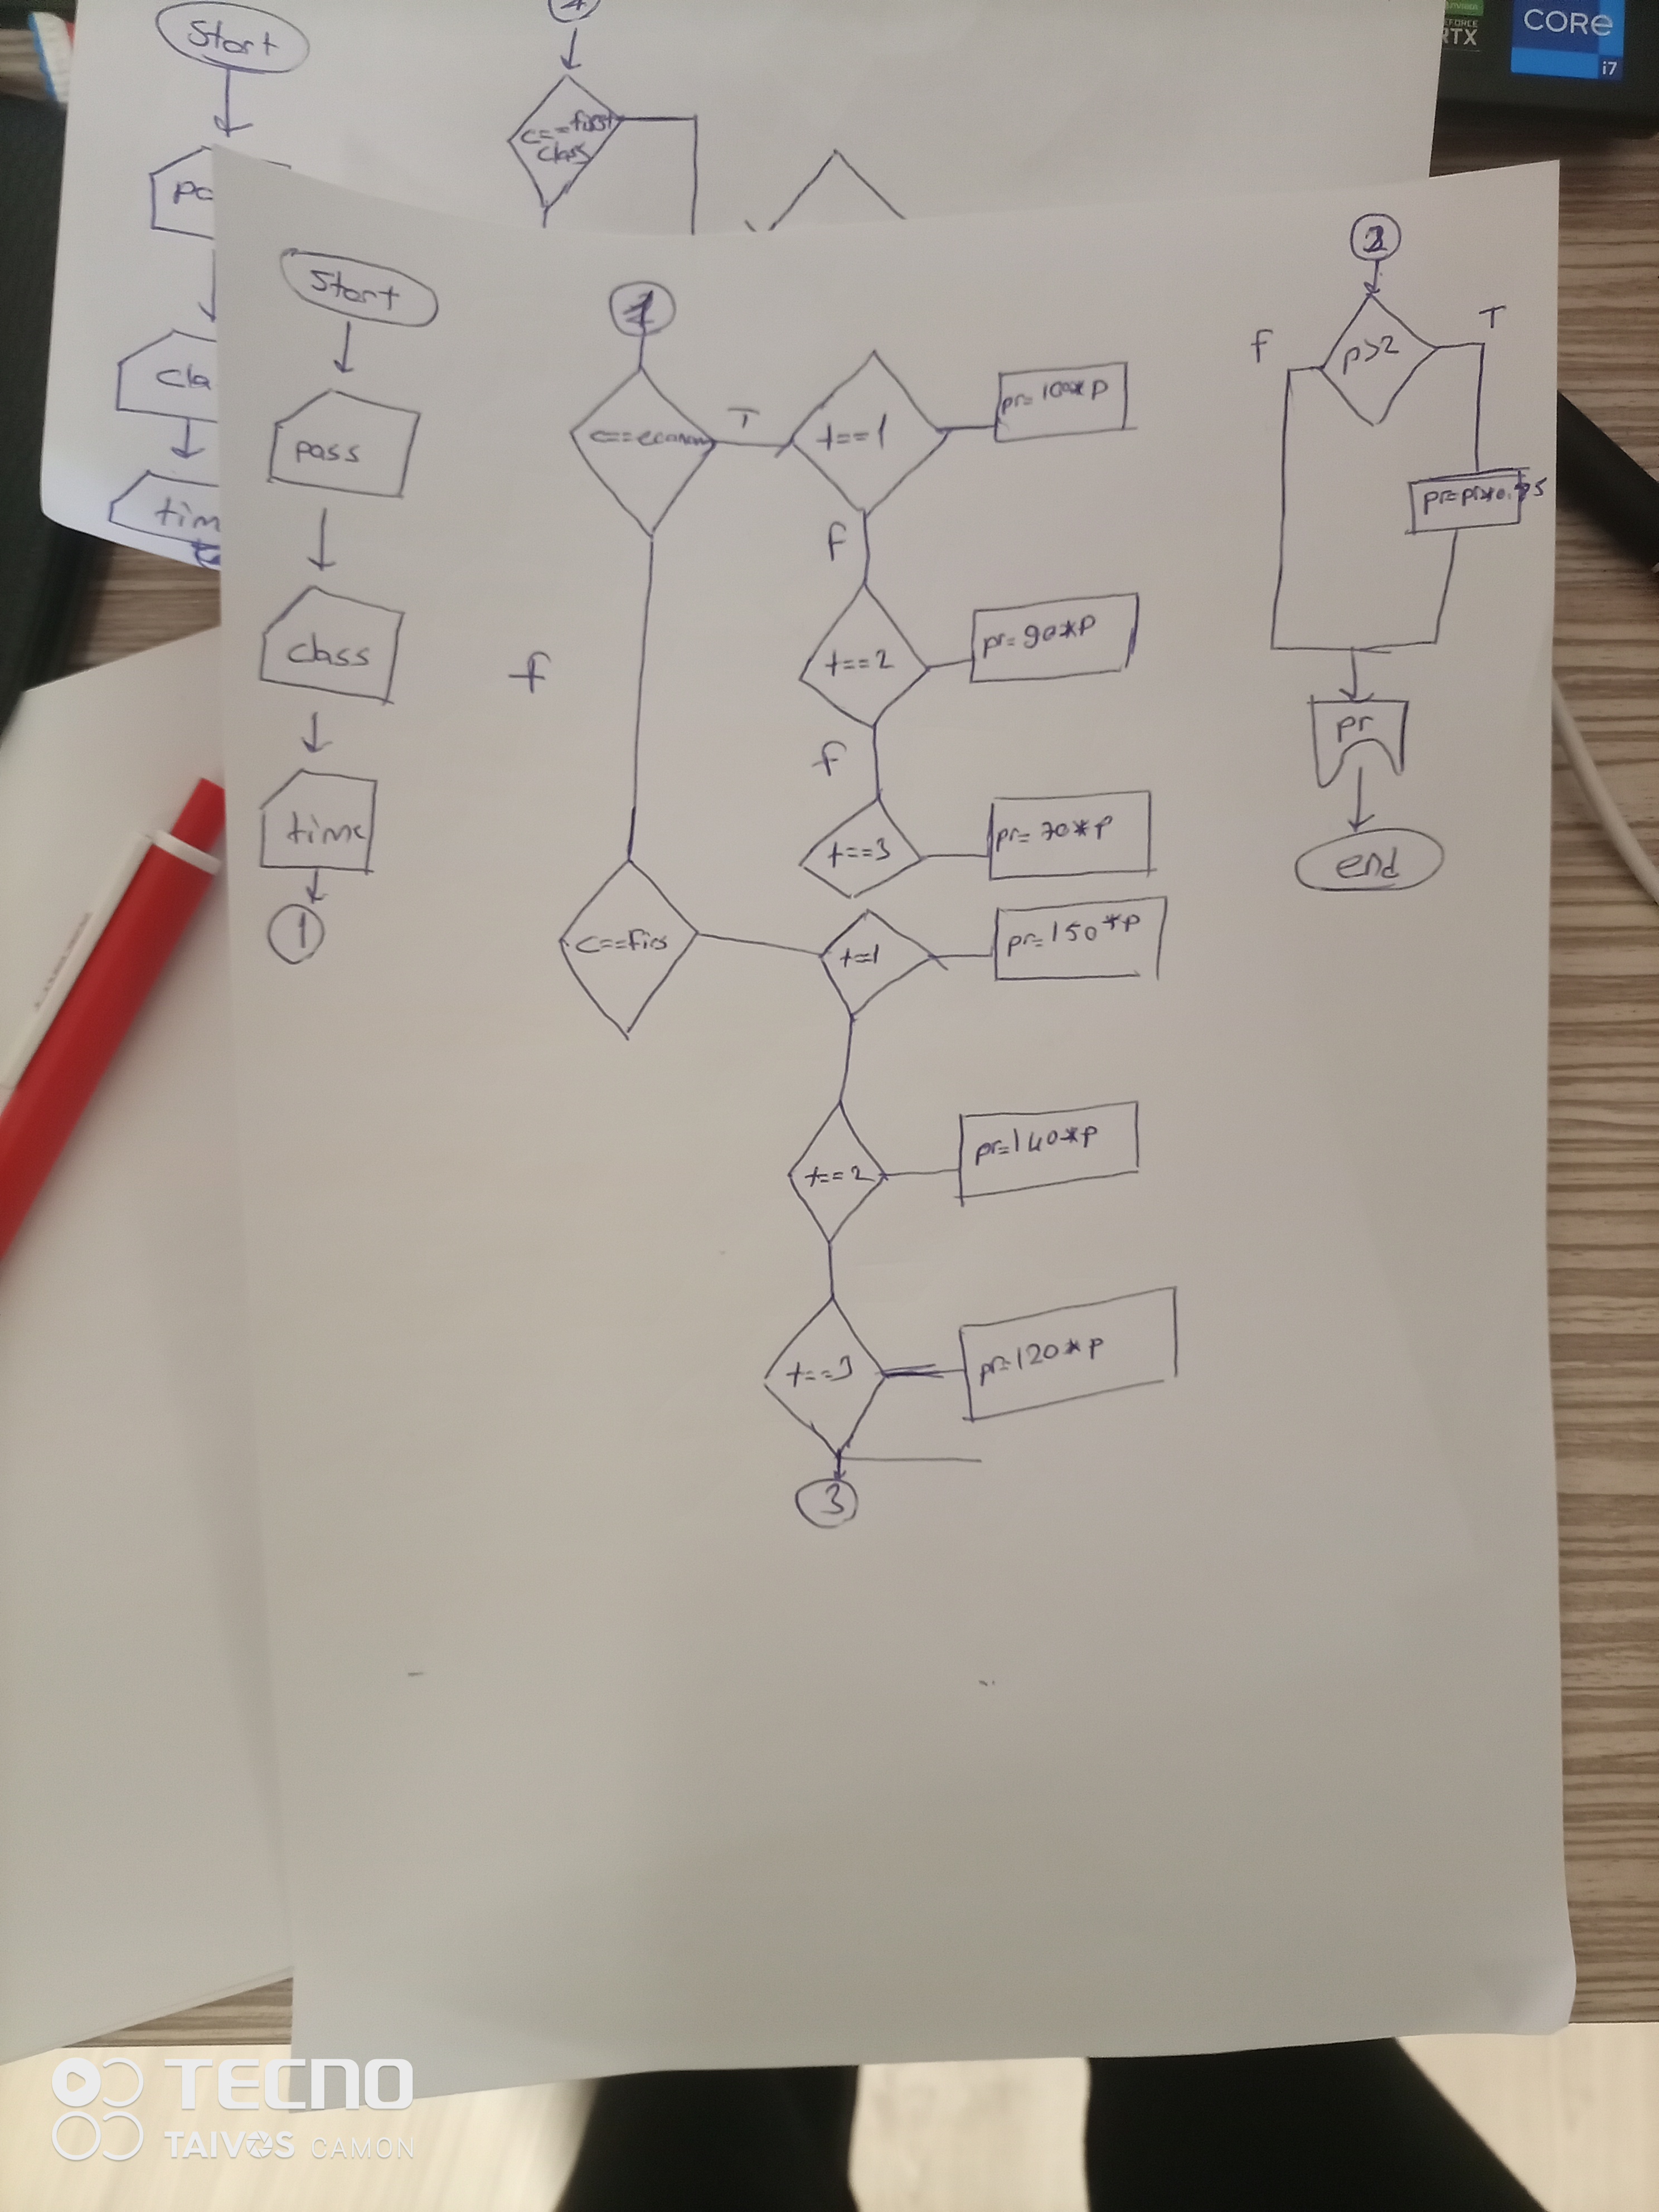 Start
c==first
class
cla
tim
CORe
i7
RTX
Start
pass
class
time
1
c==econom
T
t==1
pr=100*p
f
t==2
pr=90*p
f
t==3
pr=70*p
f
c==firs
t==1
pr=150*p
t==2
pr=140*p
t==3
pr=120*p
3
p>2
f
T
pr
end
TECNO
TAIVOS CAMON